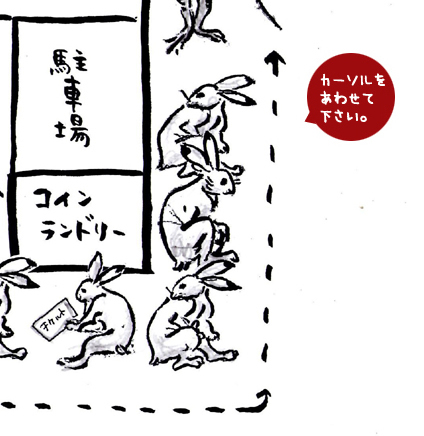 駐車場
コイン
ランドリー
チケット
カーソルを
あわせて
下さい。